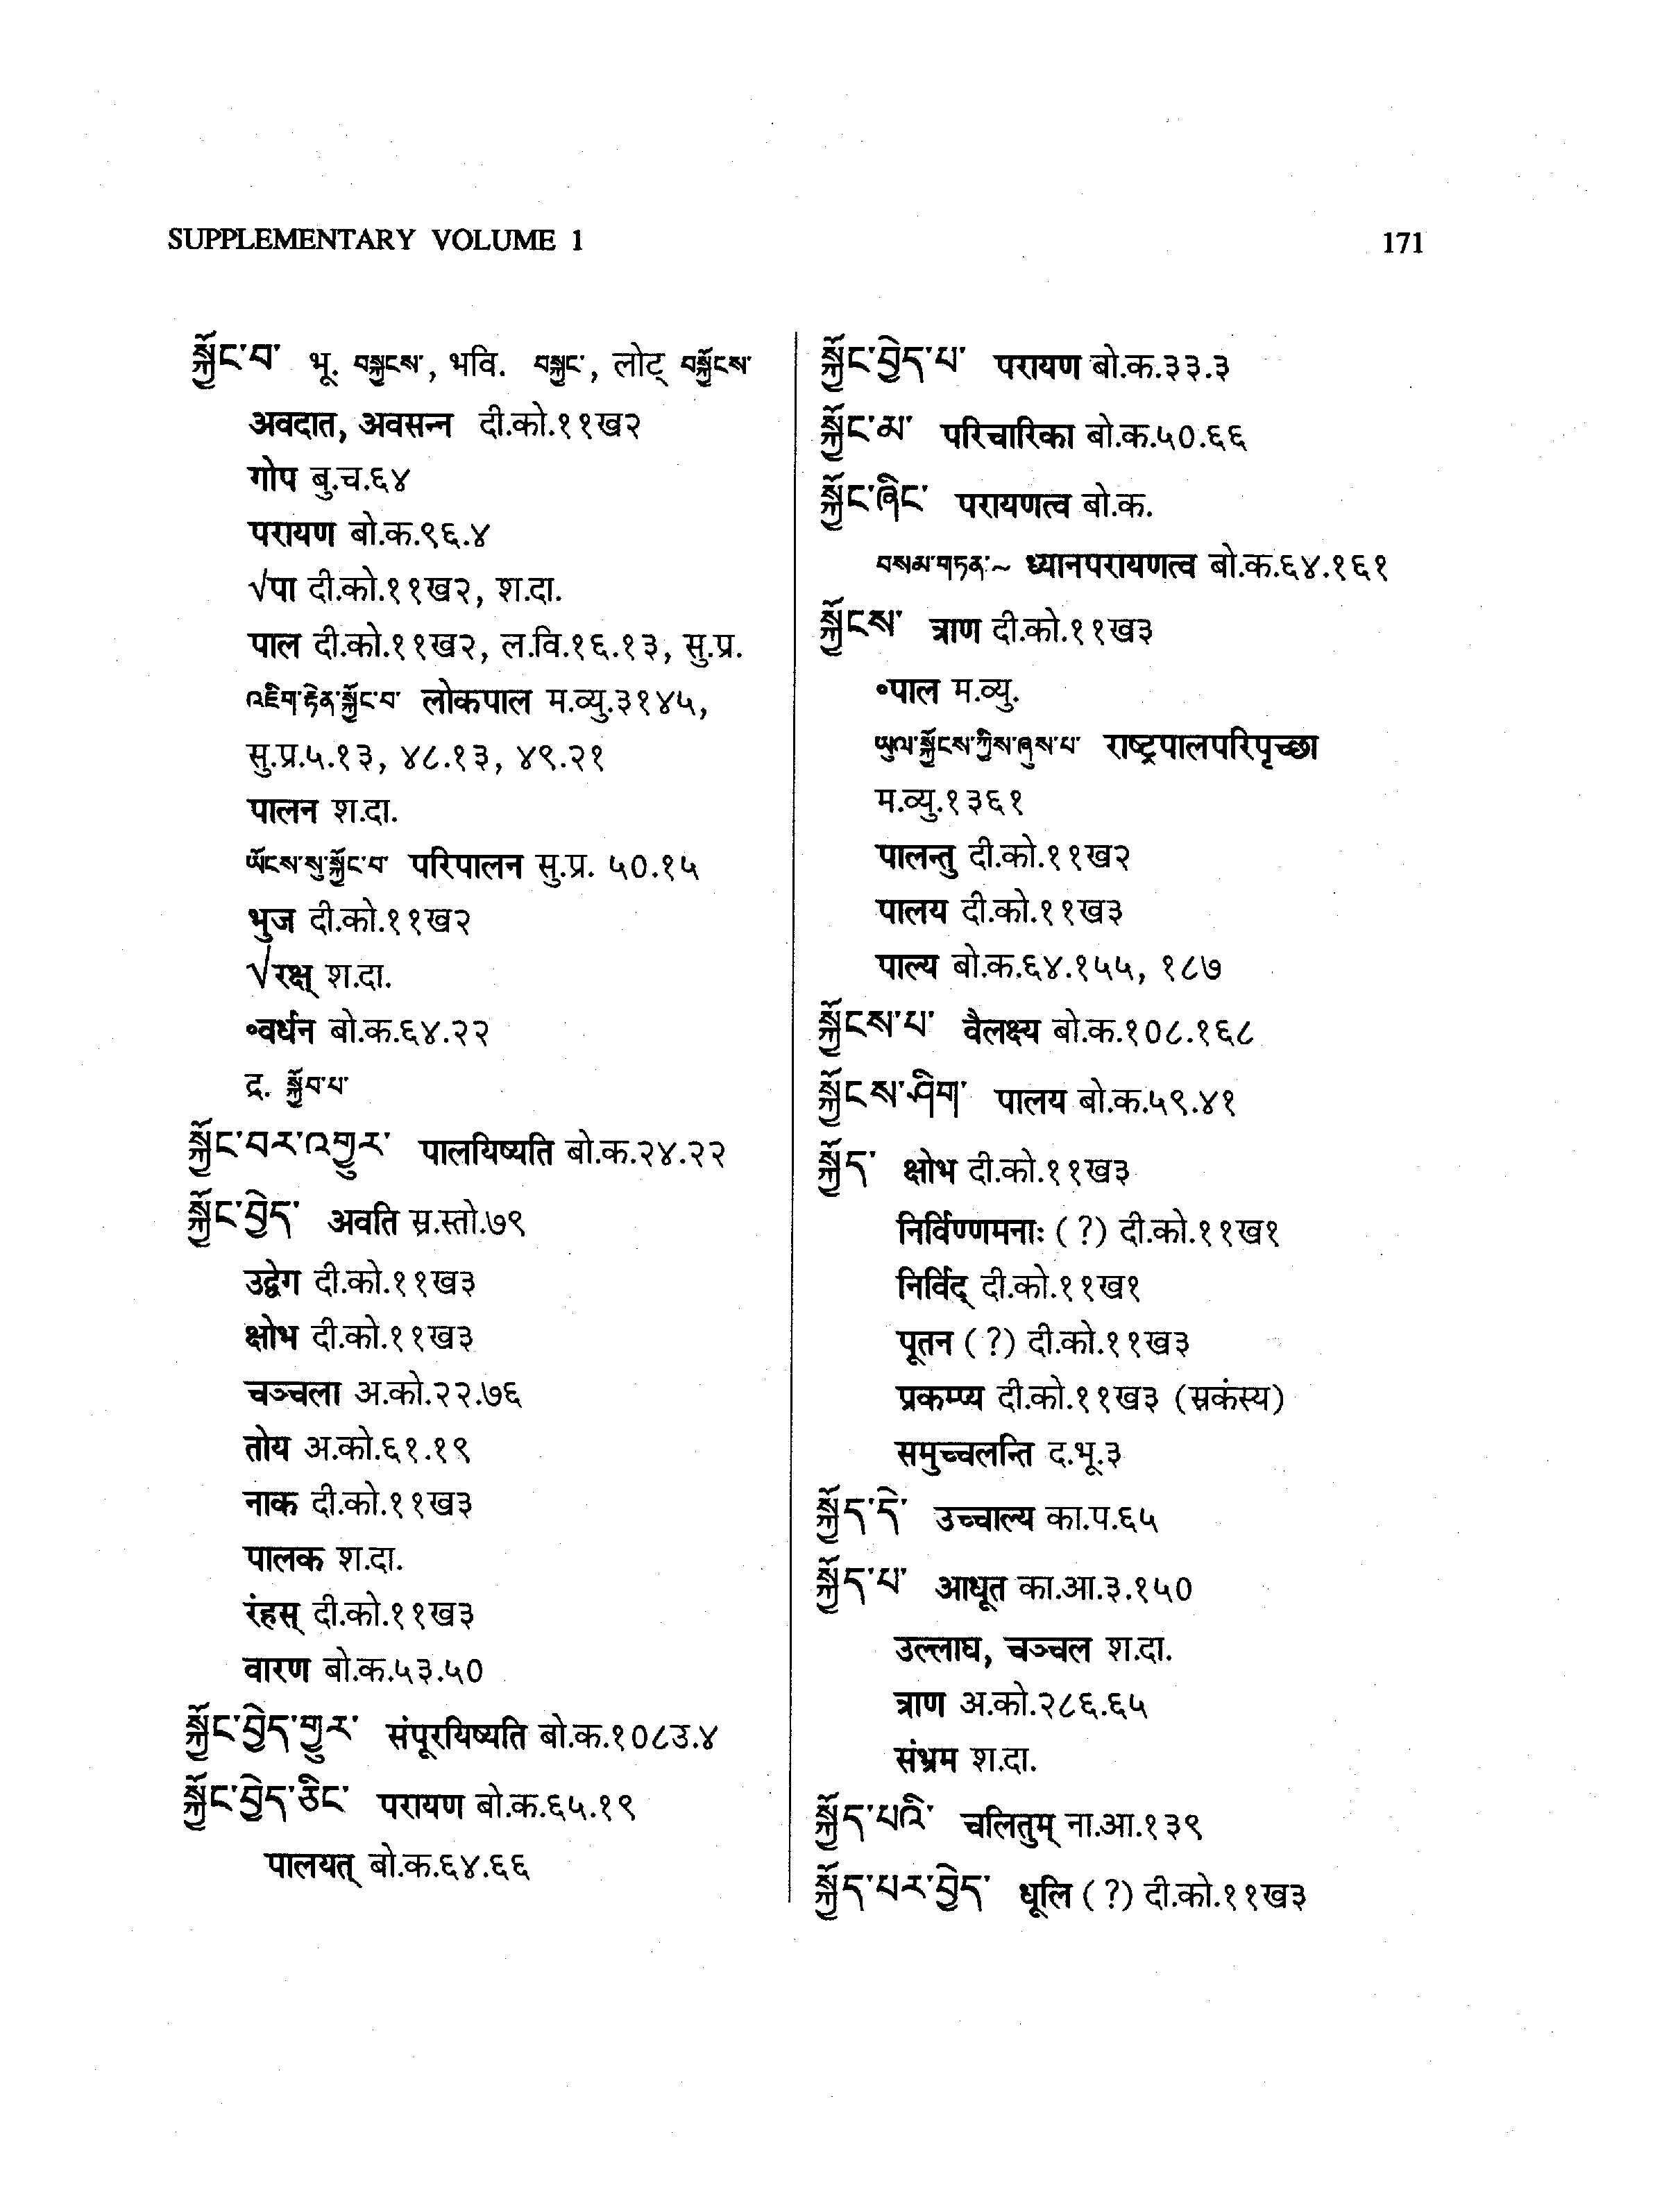 SUPPLEMENTARY VOLUME 1
171
སྐྱོང་བ་ भू. བསྐྱངས་, भवि. བསྐྱང་, लोट् བསྐྱོངས་
अवदात, अवसन्न दी.को.११ख२
गोप बु.च.६४
परायण बो.क.९६.४
√पा दी.को.११ख२, श.दा.
पाल दी.को.११ख२, ल.वि.१६.१३, सु.प्र.
འཇིག་རྟེན་སྐྱོང་བ་ लोकपाल म.व्यु.३१४५,
सु.प्र.५.१३, ४८.१३, ४९.२१
पालन श.दा.
ཡོངས་སུ་སྐྱོང་བ་ परिपालन सु.प्र. ५०.१५
भुज दी.को.११ख२
√रक्ष् श.दा.
॰वर्धन बो.क.६४.२२
द्र. སྐྱོབ་པ་
སྐྱོང་བར་འགྱུར་ पालयिष्यति बो.क.२४.२२
སྐྱོང་བྱེད་ अवति स्र.स्तो.७९
उद्वेग दी.को.११ख३
क्षोभ दी.को.११ख३
चञ्चला अ.को.२२.७६
तोय अ.को.६१.१९
नाक दी.को.११ख३
पालक श.दा.
रंहस् दी.को.११ख३
वारण बो.क.५३.५०
སྐྱོང་བྱེད་གྱུར་ संपूरयिष्यति बो.क.१०८उ.४
སྐྱོང་བྱེད་ཅིང་ परायण बो.क.६५.१९
पालयत् बो.क.६४.६६
སྐྱོང་བྱེད་པ་ परायण बो.क.३३.३
སྐྱོང་མ་ परिचारिका बो.क.५०.६६
སྐྱོང་ཞིང་ परायणत्व बो.क.
བསམ་གཏན་~ ध्यानपरायणत्व बो.क.६४.१६१
སྐྱོངས་ त्राण दी.को.११ख३
॰पाल म.व्यु.
ཡུལ་སྐྱོངས་ཀྱིས་ཞུས་པ་ राष्ट्रपालपरिपृच्छा
म.व्यु.१३६१
पालन्तु दी.को.११ख२
पालय दी.को.११ख३
पाल्य बो.क.६४.१५५, १८७
སྐྱོངས་པ་ वैलक्ष्य बो.क.१०८.१६८
སྐྱོངས་ཤིག་ पालय बो.क.५९.४१
སྐྱོད་ क्षोभ दी.को.११ख३
निर्विण्णमनाः (?) दी.को.११ख१
निर्विद् दी.को.११ख१
पूतन (?) दी.को.११ख३
प्रकम्प्य दी.को.११ख३ (स्रकंस्य)
समुच्चलन्ति द.भू.३
སྐྱོད་དེ་ उच्चाल्य का.प.६५
སྐྱོད་པ་ आधूत का.आ.३.१५०
उल्लाघ, चञ्चल श.दा.
त्राण अ.को.२८६.६५
संभ्रम श.दा.
སྐྱོད་པའི་ चलितुम् ना.आ.१३९
སྐྱོད་པར་བྱེད་ धूलि (?) दी.को.११ख३